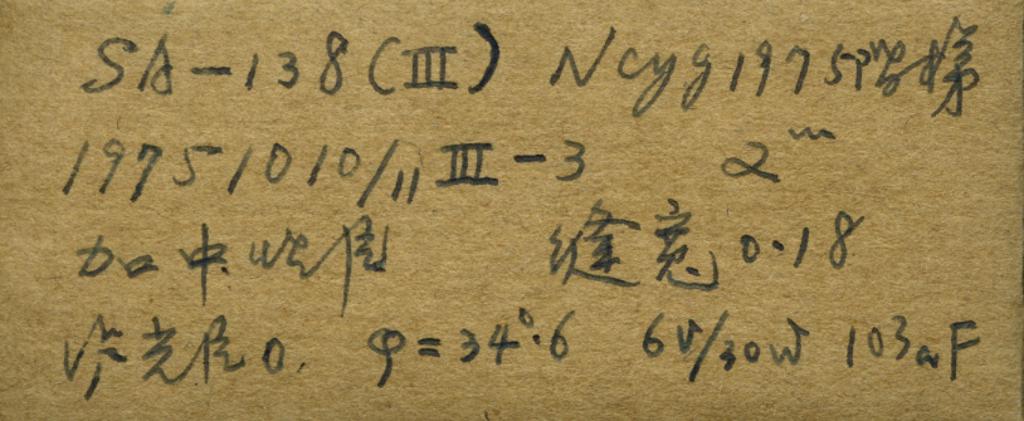 SA-138(III) N cyg 1975 阶梯
1975 10 10/11 III-3 2ᵐ
加中性片 缝宽0.18
片0. φ=34°.6 6V/30W 103aF